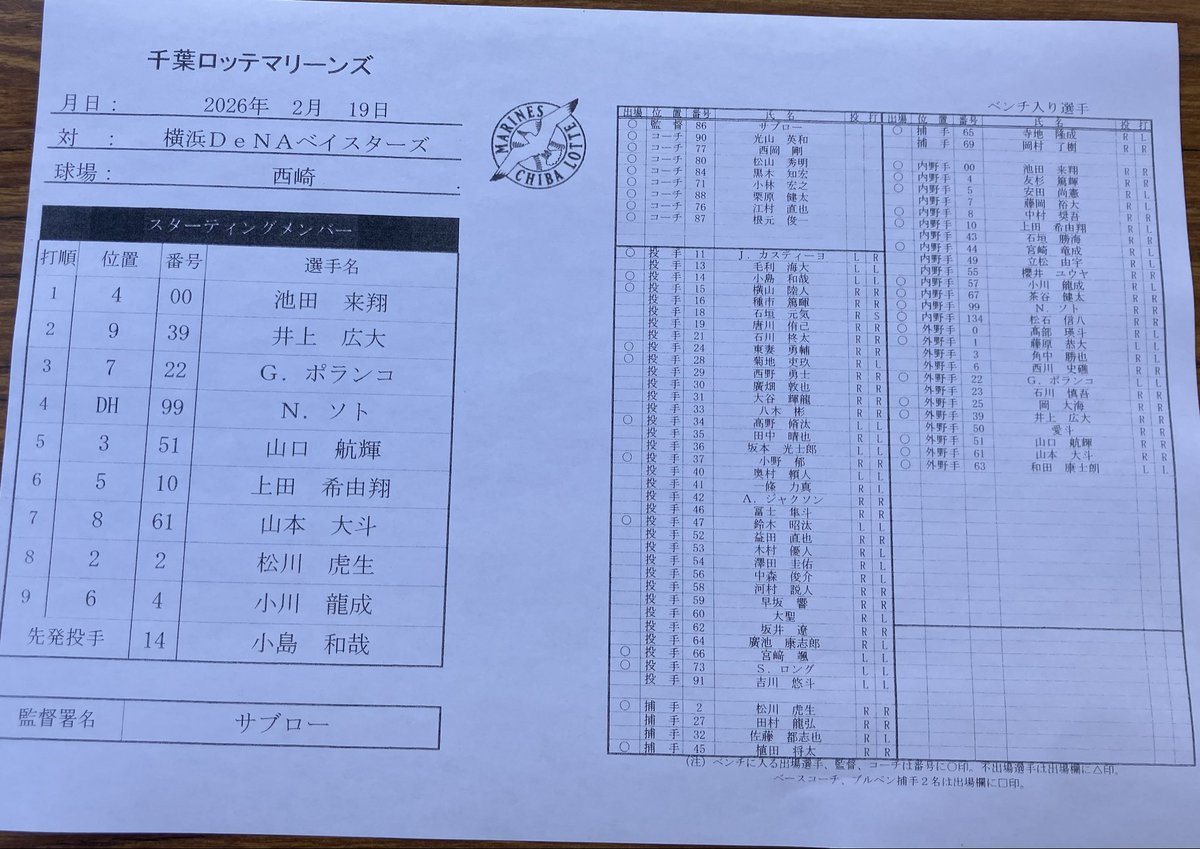 千葉ロッテマリーンズ
月日： 2026年 2月 19日
対 ： 横浜DeNAベイスターズ
球場： 西崎
MARINES
CHIBA LOTTE
スターティングメンバー
打順 位置 番号 選手名
1 4 00 池田 来翔
2 9 39 井上 広大
3 7 22 G．ポランコ
4 DH 99 N．ソト
5 3 51 山口 航輝
6 5 10 上田 希由翔
7 8 61 山本 大斗
8 2 2 松川 虎生
9 6 4 小川 龍成
先発投手 14 小島 和哉
監督署名 サブロー
ベンチ入り選手
出場 位置 番号 氏名 投 打
○ 監督 86 サブロー
○ コーチ 90 光山 英和
○ コーチ 77 西岡 剛
○ コーチ 80 松山 秀明
○ コーチ 84 黒木 知宏
○ コーチ 71 小林 宏之
○ コーチ 88 栗原 健太
○ コーチ 76 江村 直也
○ コーチ 87 根元 俊一
○ 投手 11 J．カスティーヨ L R
投手 13 毛利 海大 L L
○ 投手 14 小島 和哉 L L
○ 投手 15 横山 陸人 R R
投手 16 種市 篤暉 R R
投手 18 石垣 元気 R S
投手 19 唐川 侑己 R R
投手 21 石川 柊太 R R
○ 投手 24 東妻 勇輔 R R
○ 投手 28 菊地 吏玖 R L
投手 29 西野 勇士 R R
投手 30 廣畑 敦也 R R
投手 31 大谷 輝龍 R R
投手 33 八木 彬 R R
○ 投手 34 高野 脩汰 L L
投手 35 田中 晴也 R L
投手 36 坂本 光士郎 L L
○ 投手 37 小野 郁 R R
投手 40 奥村 頼人 L L
投手 41 一條 力真 R L
投手 42 A．ジャクソン R R
投手 46 冨士 隼斗 R R
○ 投手 47 鈴木 昭汰 L L
投手 52 益田 直也 R R
投手 53 木村 優人 R L
投手 54 澤田 圭佑 R L
投手 56 中森 俊介 R L
投手 58 河村 説人 R L
投手 59 早坂 響 R R
投手 60 大聖 L L
投手 62 坂井 遼 R R
投手 64 廣池 康志郎 R L
○ 投手 66 宮﨑 颯 L L
○ 投手 73 S．ロング L L
投手 91 吉川 悠斗 L L
○ 捕手 2 松川 虎生 R R
捕手 27 田村 龍弘 R R
捕手 32 佐藤 都志也 R L
○ 捕手 45 植田 将太 R R
出場 位置 番号 氏名 投 打
○ 捕手 65 寺地 隆成 R L
捕手 69 岡村 了樹 R R
○ 内野手 00 池田 来翔 R R
○ 内野手 4 友杉 篤輝 R R
○ 内野手 5 安田 尚憲 R L
内野手 7 藤岡 裕大 R L
○ 内野手 8 中村 奨吾 R R
○ 内野手 10 上田 希由翔 R L
内野手 43 石垣 海 R R
○ 内野手 44 宮崎 竜成 R L
内野手 49 立松 由宇 R L
内野手 55 櫻井 ユウヤ R R
○ 内野手 57 小川 龍成 R L
○ 内野手 67 茶谷 健太 R R
○ 内野手 99 N．ソト R R
○ 内野手 134 松石 信八 R R
○ 外野手 0 高部 瑛斗 R L
○ 外野手 1 藤原 恭大 L L
外野手 3 角中 勝也 R L
外野手 6 西川 史礁 R R
○ 外野手 22 G．ポランコ L L
外野手 23 石川 慎吾 R R
○ 外野手 25 岡 大海 R R
○ 外野手 39 井上 広大 R R
外野手 50 愛斗 R R
○ 外野手 51 山口 航輝 R R
○ 外野手 61 山本 大斗 R R
○ 外野手 63 和田 康士朗 L L
（注）ベンチに入る出場選手、監督、コーチは番号に○印。不出場選手は出場欄に△印。
ベースコーチ、ブルペン捕手２名は出場欄に□印。